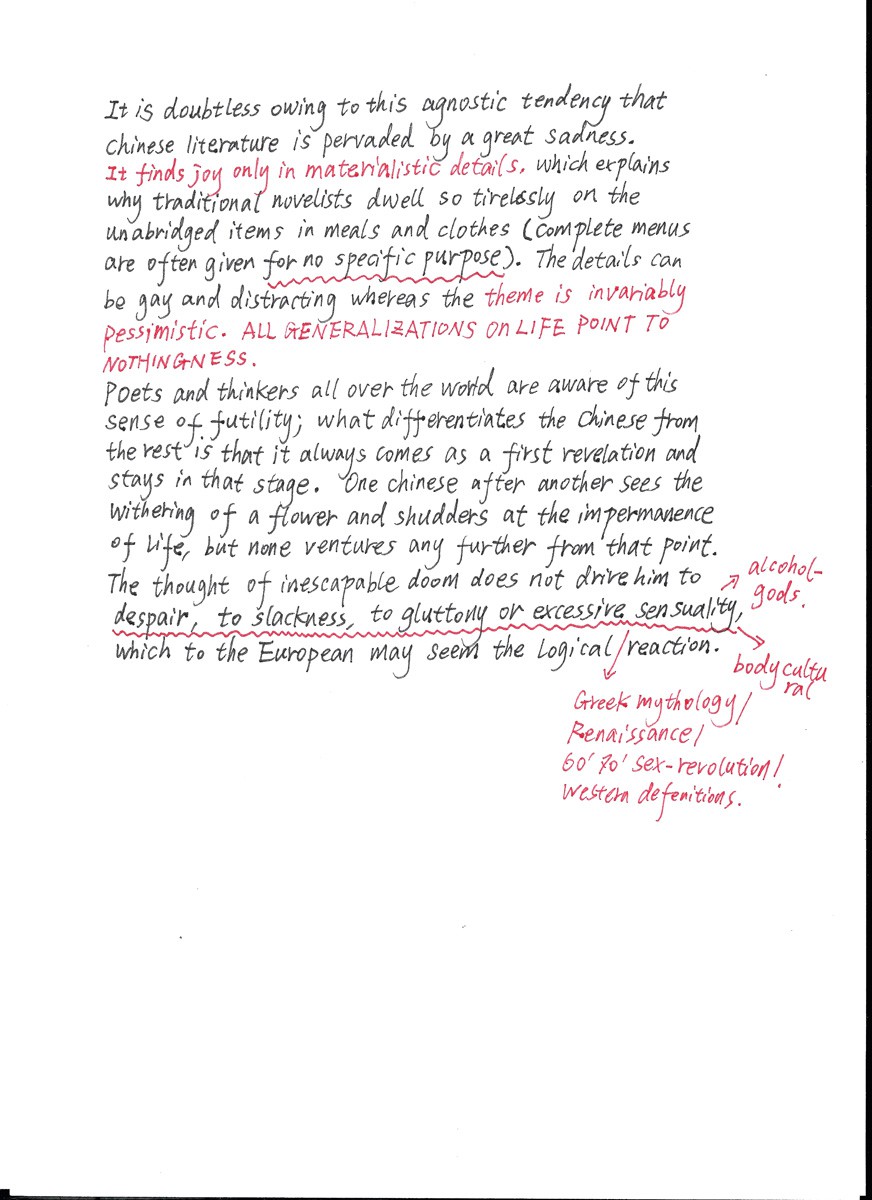 It is doubtless owing to this agnostic tendency that
Chinese literature is pervaded by a great sadness.
It finds joy only in materialistic details, which explains
why traditional novelists dwell so tirelessly on the
unabridged items in meals and clothes (complete menus
are often given for no specific purpose). The details can
be gay and distracting whereas the theme is invariably
pessimistic. ALL GENERALIZATIONS ON LIFE POINT TO
NOTHINGNESS.
Poets and thinkers all over the world are aware of this
sense of futility; what differentiates the Chinese from
the rest is that it always comes as a first revelation and
stays in that stage. One chinese after another sees the
withering of a flower and shudders at the impermanence
of life, but none ventures any further from that point.
The thought of inescapable doom does not drive him to
despair, to slackness, to gluttony or excessive sensuality,
which to the European may seem the logical reaction.
alcohol-
gods.
body cultu
ral
Greek mythology/
Renaissance/
60' 70' sex-revolution/
Western defenitions.